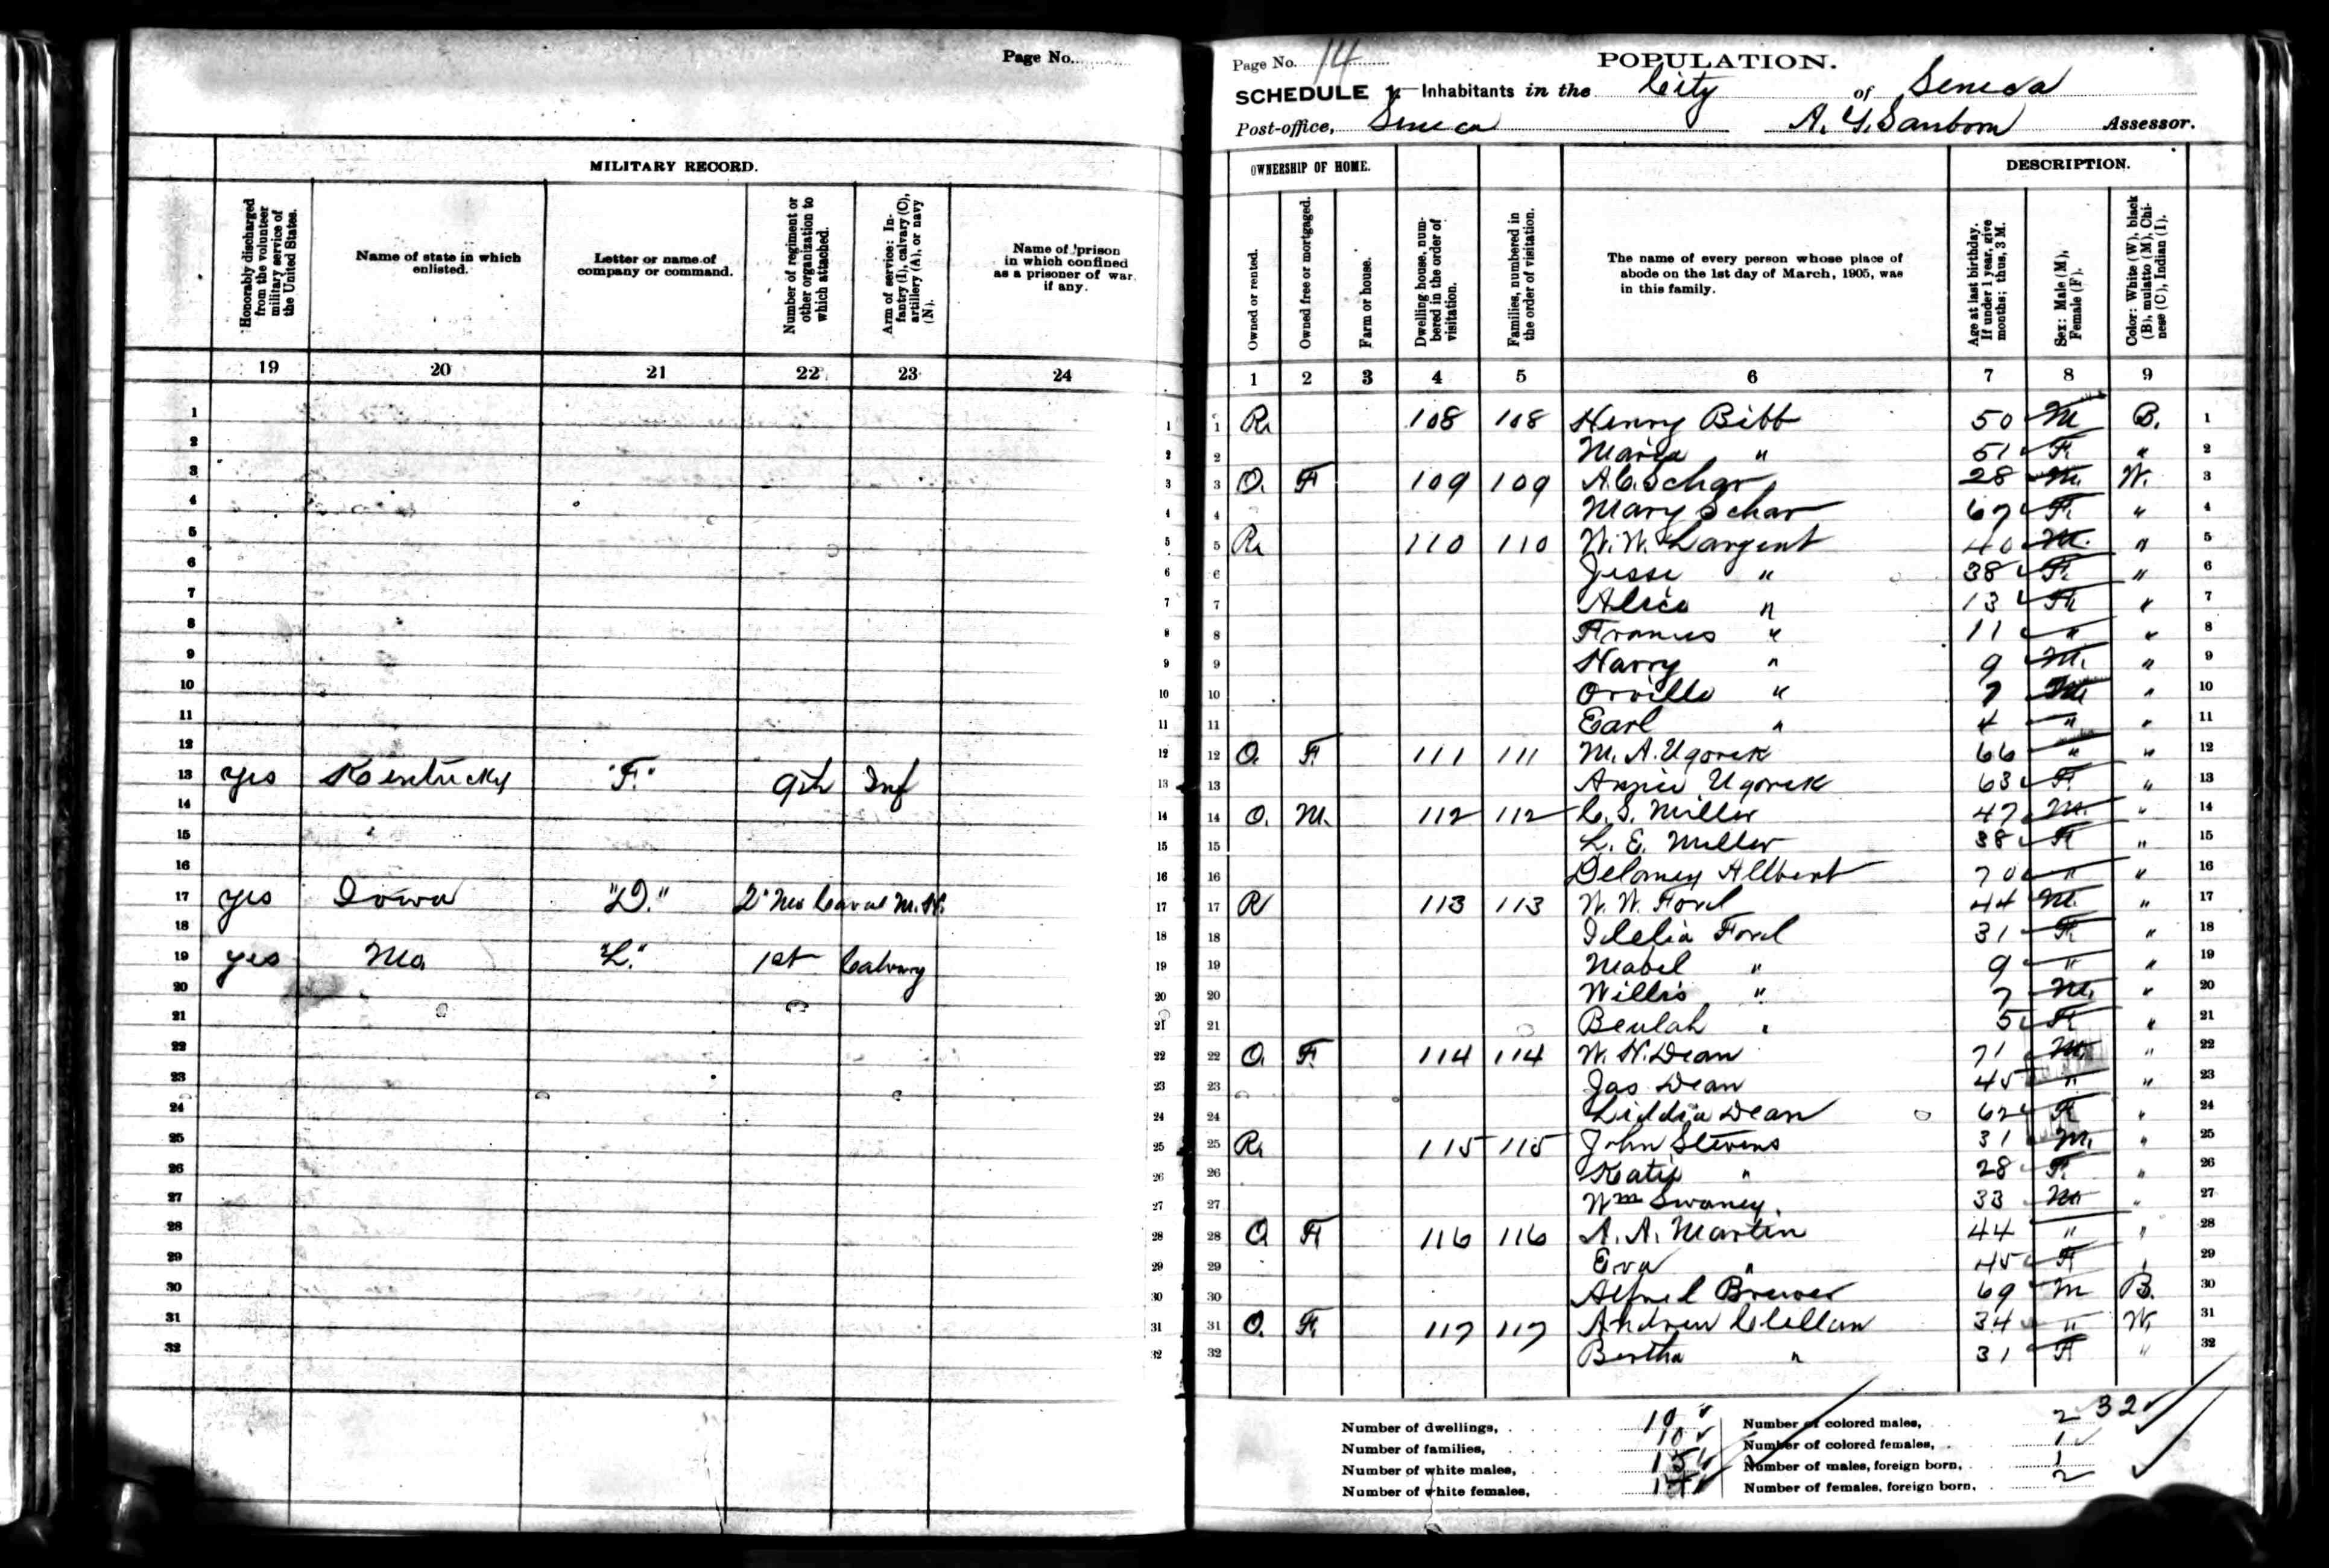 Page No.
MILITARY RECORD.
Honorably discharged from the volunteer military service of the United States.
Name of state in which enlisted.
Letter or name of company or command.
Number of regiment or other organization to which attached.
Arm of service: Infantry (I), calvary (C), artillery (A), or navy (N).
Name of prison in which confined as a prisoner of war, if any.
19 20 21 22 23 24
1
2
3
4
5
6
7
8
9
10
11
12
13 yes Kentucky "F." 9th Inf
14
15
16
17 yes Iowa "D."
18
19 yes Mo "L." 1st Calvary
20
21
22
23
24
25
26
27
28
29
30
31
32
Page No. 14 POPULATION.
SCHEDULE Inhabitants in the City of Seneca
Post-office, Seneca A. G. Sanborn Assessor.
OWNERSHIP OF HOME. DESCRIPTION.
Owned or rented.
Owned free or mortgaged.
Farm or house.
Dwelling house, numbered in the order of visitation.
Families, numbered in the order of visitation.
The name of every person whose place of abode on the 1st day of March, 1905, was in this family.
Age at last birthday. If under 1 year, give months; thus, 3 M.
Sex: Male (M), Female (F).
Color: White (W), black (B), mulatto (M), Chinese (C), Indian (I).
1 2 3 4 5 6 7 8 9
1 R. 108 108 Henry Bibb 50 M B. 1
2 Maria " 51 F. " 2
3 O. F 109 109 A.C. Schar 28 M. W. 3
4 Mary Schar 67 F. " 4
5 R. 110 110 W. W. Largent 40 M. " 5
6 Jesse " 38 F. " 6
7 Alice " 13 F. " 7
8 Frances " 11 " " 8
9 Harry " 9 M. " 9
10 Orville " 7 M " 10
11 Earl " 4 " " 11
12 O. F. 111 111 M. A. Ugorek 66 " " 12
13 Annie Ugorek 63 F. " 13
14 O. M. 112 112 C. S. Miller 47 M. " 14
15 L. E. Miller 38 F " 15
16 Delaney Allbert 70 " " 16
17 R 113 113 W. W. Ford 44 M. " 17
18 Idelia Ford 31 F. " 18
19 Mabel " 9 " " 19
20 Willis " 7 M. " 20
21 Beulah " 5 F " 21
22 O. F. 114 114 W. H. Dean 71 M. " 22
23 Jas Dean 45 " " 23
24 Liddia Dean 62 F " 24
25 R. 115 115 John Stevens 31 M. " 25
26 Katie " 28 F. " 26
27 Wm Swaney 33 M " 27
28 O F 116 116 A. A. Martin 44 " " 28
29 Eva " 45 F " 29
30 Alfred Brewer 69 M B. 30
31 O. F. 117 117 Andrew Clellan 34 " W. 31
32 Bertha " 31 F " 32
32
Number of dwellings, 10 Number of colored males, 2
Number of families, 10 Number of colored females, 1
Number of white males, 15 Number of males, foreign born, 1
Number of white females, 14 Number of females, foreign born, 2